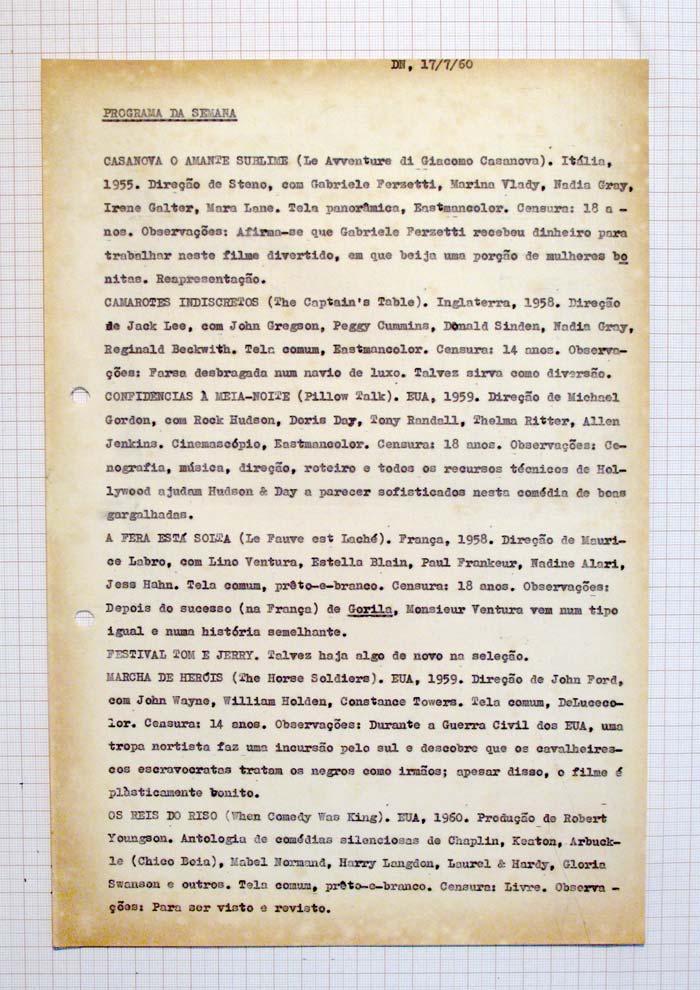 DN, 17/7/60
PROGRAMA DA SEMANA
CASANOVA O AMANTE SUBLIME (Le Avventure di Giacomo Casanova). Itália,
1955. Direção de Steno, com Gabriele Ferzetti, Marina Vlady, Nadia Gray,
Irene Galter, Mara Lane. Tela panorâmica, Eastmancolor. Censura: 18 a -
nos. Observações: Afirma-se que Gabriele Ferzetti recebeu dinheiro para
trabalhar neste filme divertido, em que beija uma porção de mulheres bo
nitas. Reapresentação.
CAMAROTES INDISCRETOS (The Captain's Table). Inglaterra, 1958. Direção
de Jack Lee, com John Gregson, Peggy Cummins, Donald Sinden, Nadia Gray,
Reginald Beckwith. Tela comum, Eastmancolor. Censura: 14 anos. Observa-
ções: Farsa desbragada num navio de luxo. Talvez sirva como diversão.
CONFIDENCIAS À MEIA-NOITE (Pillow Talk). EUA, 1959. Direção de Michael
Gordon, com Rock Hudson, Doris Day, Tony Randall, Thelma Ritter, Allen
Jenkins. Cinemascópio, Eastmancolor. Censura: 18 anos. Observações: Ce-
nografia, música, direção, roteiro e todos os recursos técnicos de Hol-
lywood ajudam Hudson & Day a parecer sofisticados nesta comédia de boas
gargalhadas.
A FERA ESTÁ SOLTA (Le Fauve est Laché). França, 1958. Direção de Mauri-
ce Labro, com Lino Ventura, Estella Blain, Paul Frankeur, Nadine Alari,
Jess Hahn. Tela comum, prêto-e-branco. Censura: 18 anos. Observações:
Depois do sucesso (na França) de Gorila, Monsieur Ventura vem num tipo
igual e numa história semelhante.
FESTIVAL TOM E JERRY. Talvez haja algo de novo na seleção.
MARCHA DE HERÓIS (The Horse Soldiers). EUA, 1959. Direção de John Ford,
com John Wayne, William Holden, Constance Towers. Tela comum, DeLuceco-
lor. Censura: 14 anos. Observações: Durante a Guerra Civil dos EUA, uma
tropa nortista faz uma incursão pelo sul e descobre que os cavalheires-
cos escravocratas tratam os negros como irmãos; apesar disso, o filme é
plàsticamente bonito.
OS REIS DO RISO (When Comedy Was King). EUA, 1960. Produção de Robert
Youngson. Antologia de comédias silenciosas de Chaplin, Keaton, Arbuck-
le (Chico Boia), Mabel Normand, Harry Langdon, Laurel & Hardy, Gloria
Swanson e outros. Tela comum, prêto-e-branco. Censura: Livre. Observa -
ções: Para ser visto e revisto.